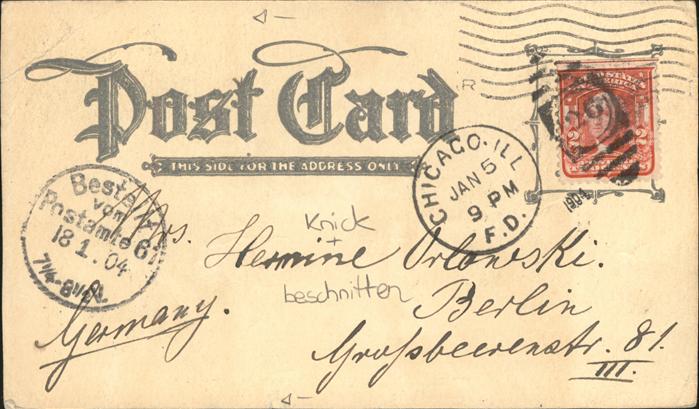 Post Card
THIS SIDE FOR THE ADDRESS ONLY
R
CHICAGO, ILL.
JAN 5
9 PM
F.D.
1904
2
2
Bestellt
vom
Postamte 61
18 1. 04
7¼-8½
Mrs. Hermine Orlowski.
Knick
+
beschnitten
Berlin
Germany.
Grossbeerenstr. 81.
III.